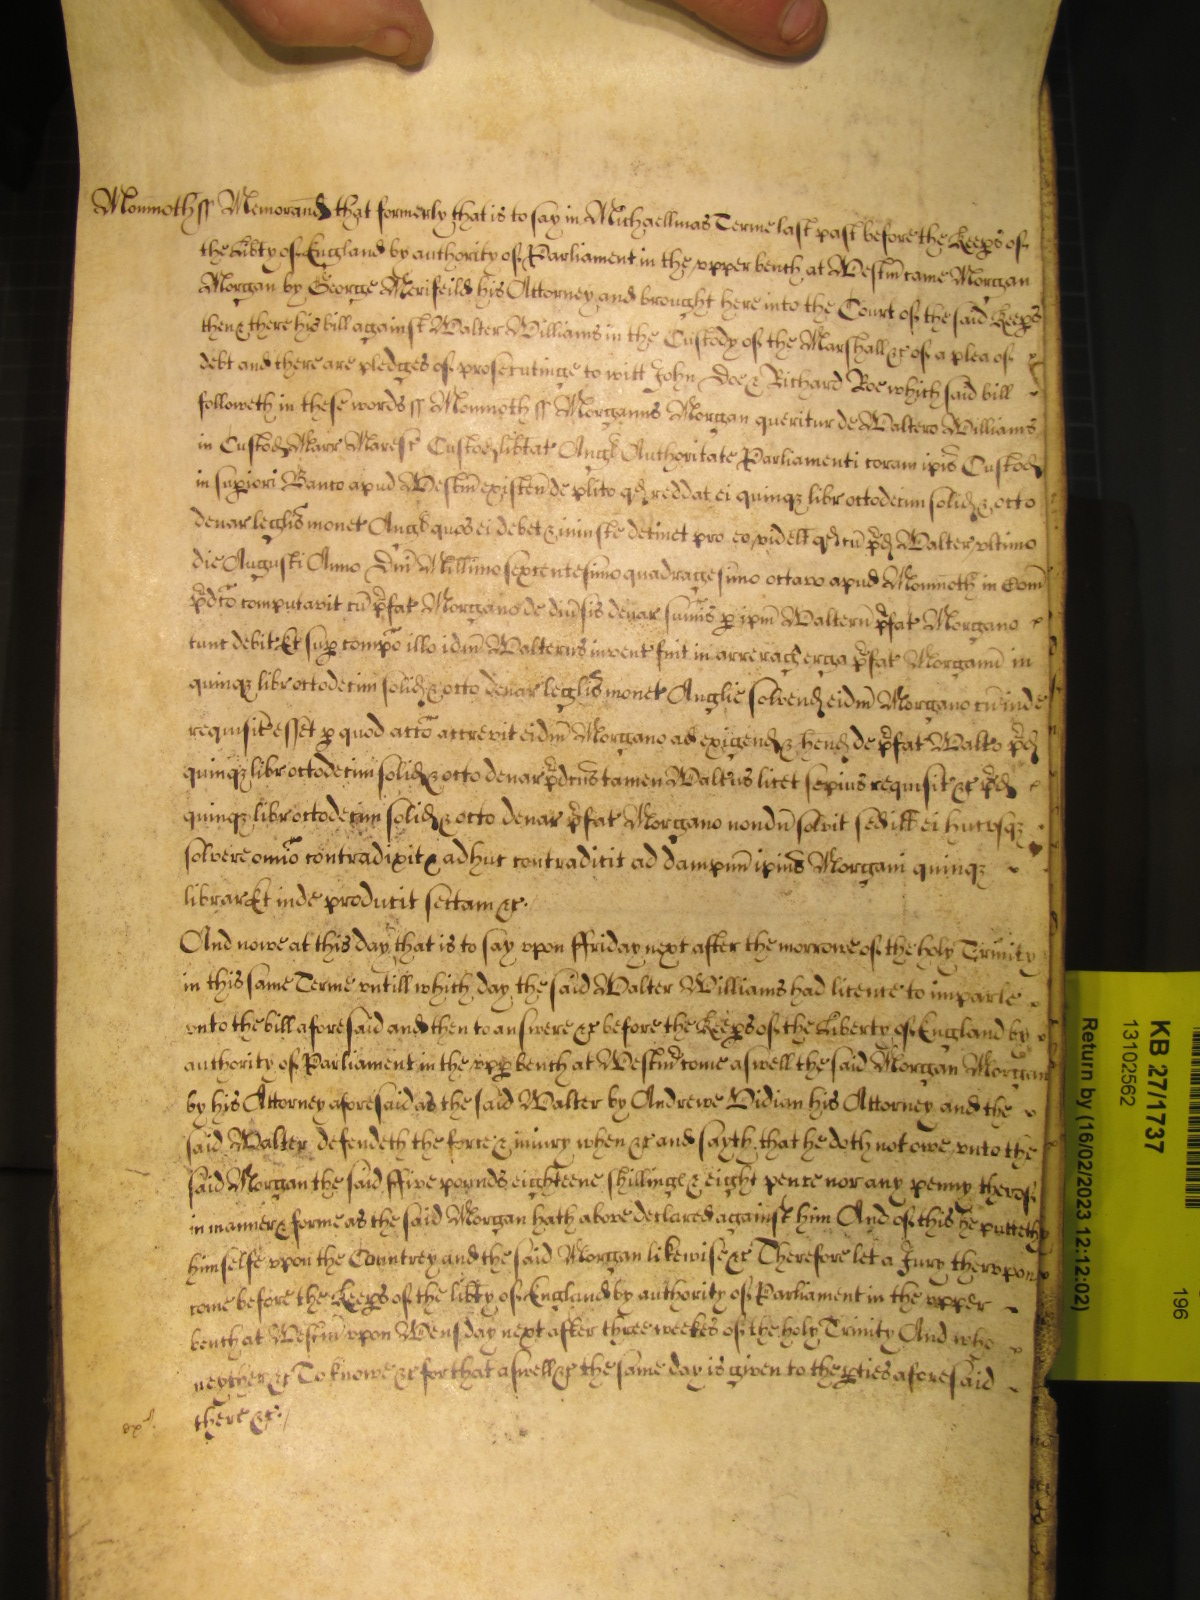 Monmoth ss Memorand that formerly that is to say in Michaellmas Terme last past before the Keeps of
the Libty of England by authority of Parliament in the vpper bench at Westm came Morgan
Morgan by George Merifeild his Attorney and brought here into the Court of the said Keeps
then & there his bill against Walter Williams in the Custody of the Marshall &c of a plea of
debt and there are pledges of prosecutinge to witt John Doe & Richard Roe which said bill
followeth in these words ss Monmoth ss Morganus Morgan queritur de Waltero Williams
in Custod Marr Maresc Custod libtat Angl Authoritate Parliamenti coram ipis Custod
in supiori Banco apud Westm existen de plito qd reddat ei quinqz libr octodecim solid & octo
denar leglis monet Angl quos ei debet & iniuste detinet pro eo videlt qd cu pd Walter vltimo
die Augusti Anno Dni Millimo sexcentesimo quadragesimo octavo apud Monmoth in Com
pdco computavit cu pfat Morgano de divsis denar sumis p ipm Walteru pfat Morgano
tunc debit Et sup compo illo idm Walterus invent fuit in arrerag erga pfat Morganu in
quinqz libr octodecim solid & octo denar leglis monet Anglie solvend eidm Morgano cu inde
requisit esset p quod acco accrevit eidm Morgano ad exigend & hend de pfat Walto pd
quinqz libr octodecim solid & octo denar pdcus tamen Waltus licet sepius requisit &c pd
quinqz libr octodecim solid & octo denar pfat Morgano nondu solvit sed ill ei hucusqz
solvere omio contradixit & adhuc contradicit ad dampnu ipius Morgani quinqz
librar Et inde producit sectam &c.
And nowe at this day that is to say vpon ffriday next after the morrowe of the holy Trinity
in this same Terme vntill which day the said Walter Williams had licence to imparle
vnto the bill aforesaid and then to answere &c before the Keeps of the Liberty of England by
authority of Parliament in the vpp bench at Westm come aswell the said Morgan Morgan
by his Attorney aforesaid as the said Walter by Andrewe Vidian his Attorney and the
said Walter defendeth the force & iniury when &c and sayth that he doth not owe vnto the
said Morgan the said ffive pounds eighteene shillings & eight pence nor any penny therof
in manner & forme as the said Morgan hath above declared against him And of this he putteth
himselfe vpon the Countrey and the said Morgan likewise &c Therefore let a Jury thervpon
come before the Keeps of the libty of England by authority of Parliament in the vpper
bench at Westm vpon Wensday next after three weekes of the holy Trinity And who
neyther &c To knowe &c for that aswell &c the same day is given to the pties aforesaid
there &c.
KB 27/1737
13102562
196
Return by (16/02/2023 12:12:02)